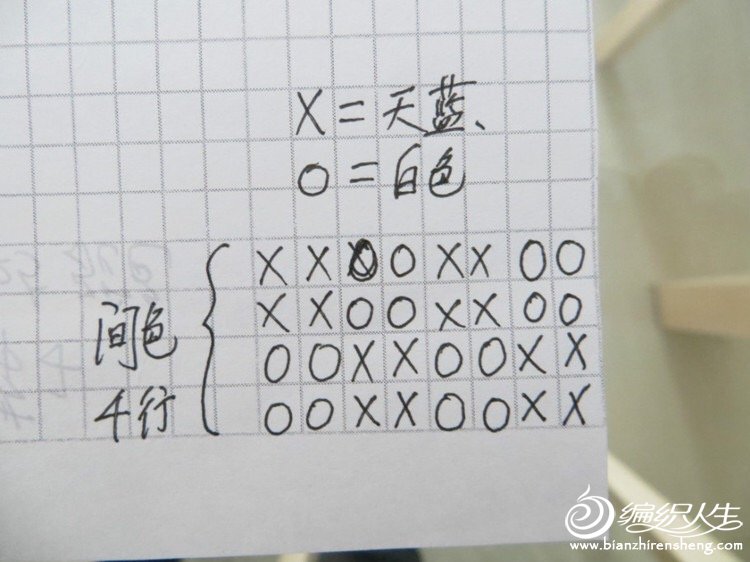 X = 天蓝、
O = 白色
X X O O X X O O
间色 X X O O X X O O
O O X X O O X X
4行 O O X X O O X X
编织人生
www.bianzhirensheng.com